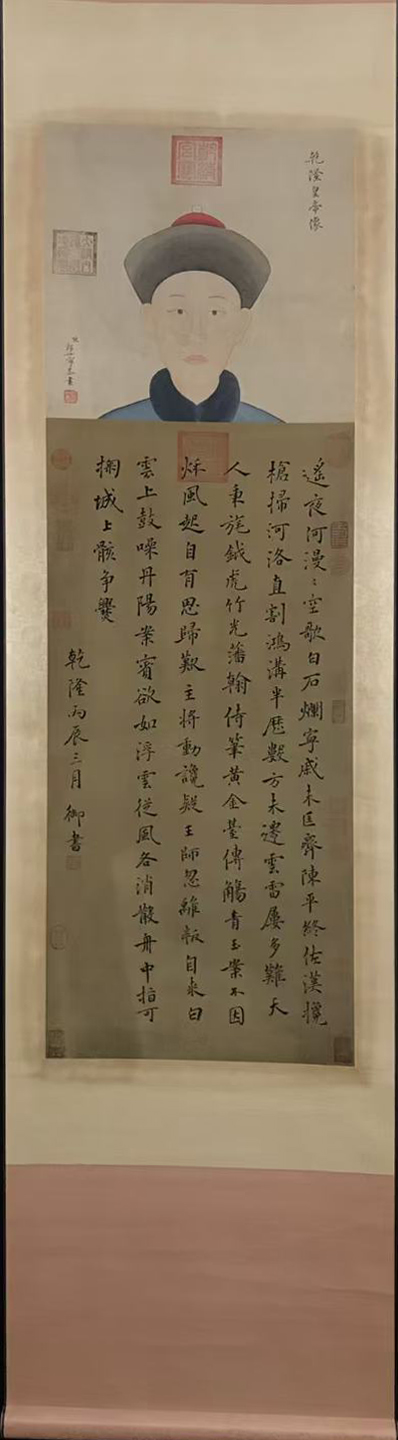 乾隆皇帝像
郎世寧恭畫
遙夜何漫〻空歌白石爛寧戚未匡齊陳平終佐漢欃
槍掃河洛直割鴻溝半歷數方未遷雲雷屢多難天
人秉旄鉞虎竹光藩翰侍筆黃金臺傳觴青玉案不因
秌風起自有思歸歎主將動讒疑王師忽離叛自來白
雲上鼓噪丹陽案賓欲如浮雲從風各消散舟中指可
掬城上骸争爨
乾隆丙辰三月御書